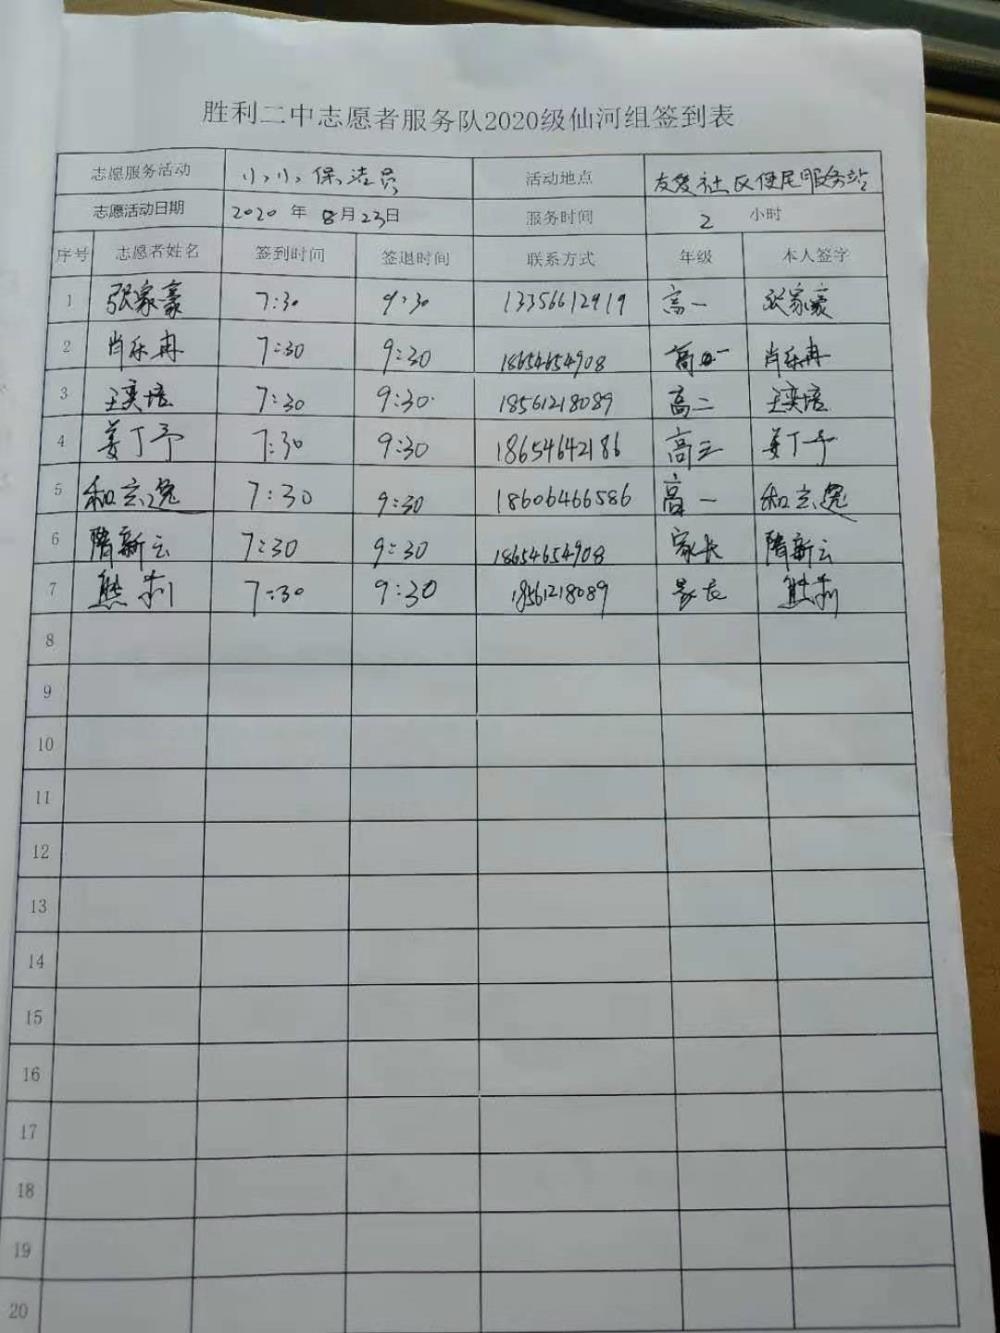 胜利二中志愿者服务队2020级仙河组签到表
志愿服务活动 小小保洁员 活动地点 友爱社区便民服务站
志愿活动日期 2020年8月23日 服务时间 2小时
序号 志愿者姓名 签到时间 签退时间 联系方式 年级 本人签字
1 张家豪 7:30 9:30 13356612919 高一 张家豪
2 肖乐冉 7:30 9:30 18654654908 高一 肖乐冉
3 王奕培 7:30 9:30 18561218089 高二 王奕培
4 姜丁予 7:30 9:30 18654642186 高三 姜丁予
5 和志逸 7:30 9:30 18606466586 高一 和志逸
6 隋新云 7:30 9:30 18654654908 家长 隋新云
7 熊莉 7:30 9:30 18561218089 家长 熊莉
8
9
10
11
12
13
14
15
16
17
18
19
20